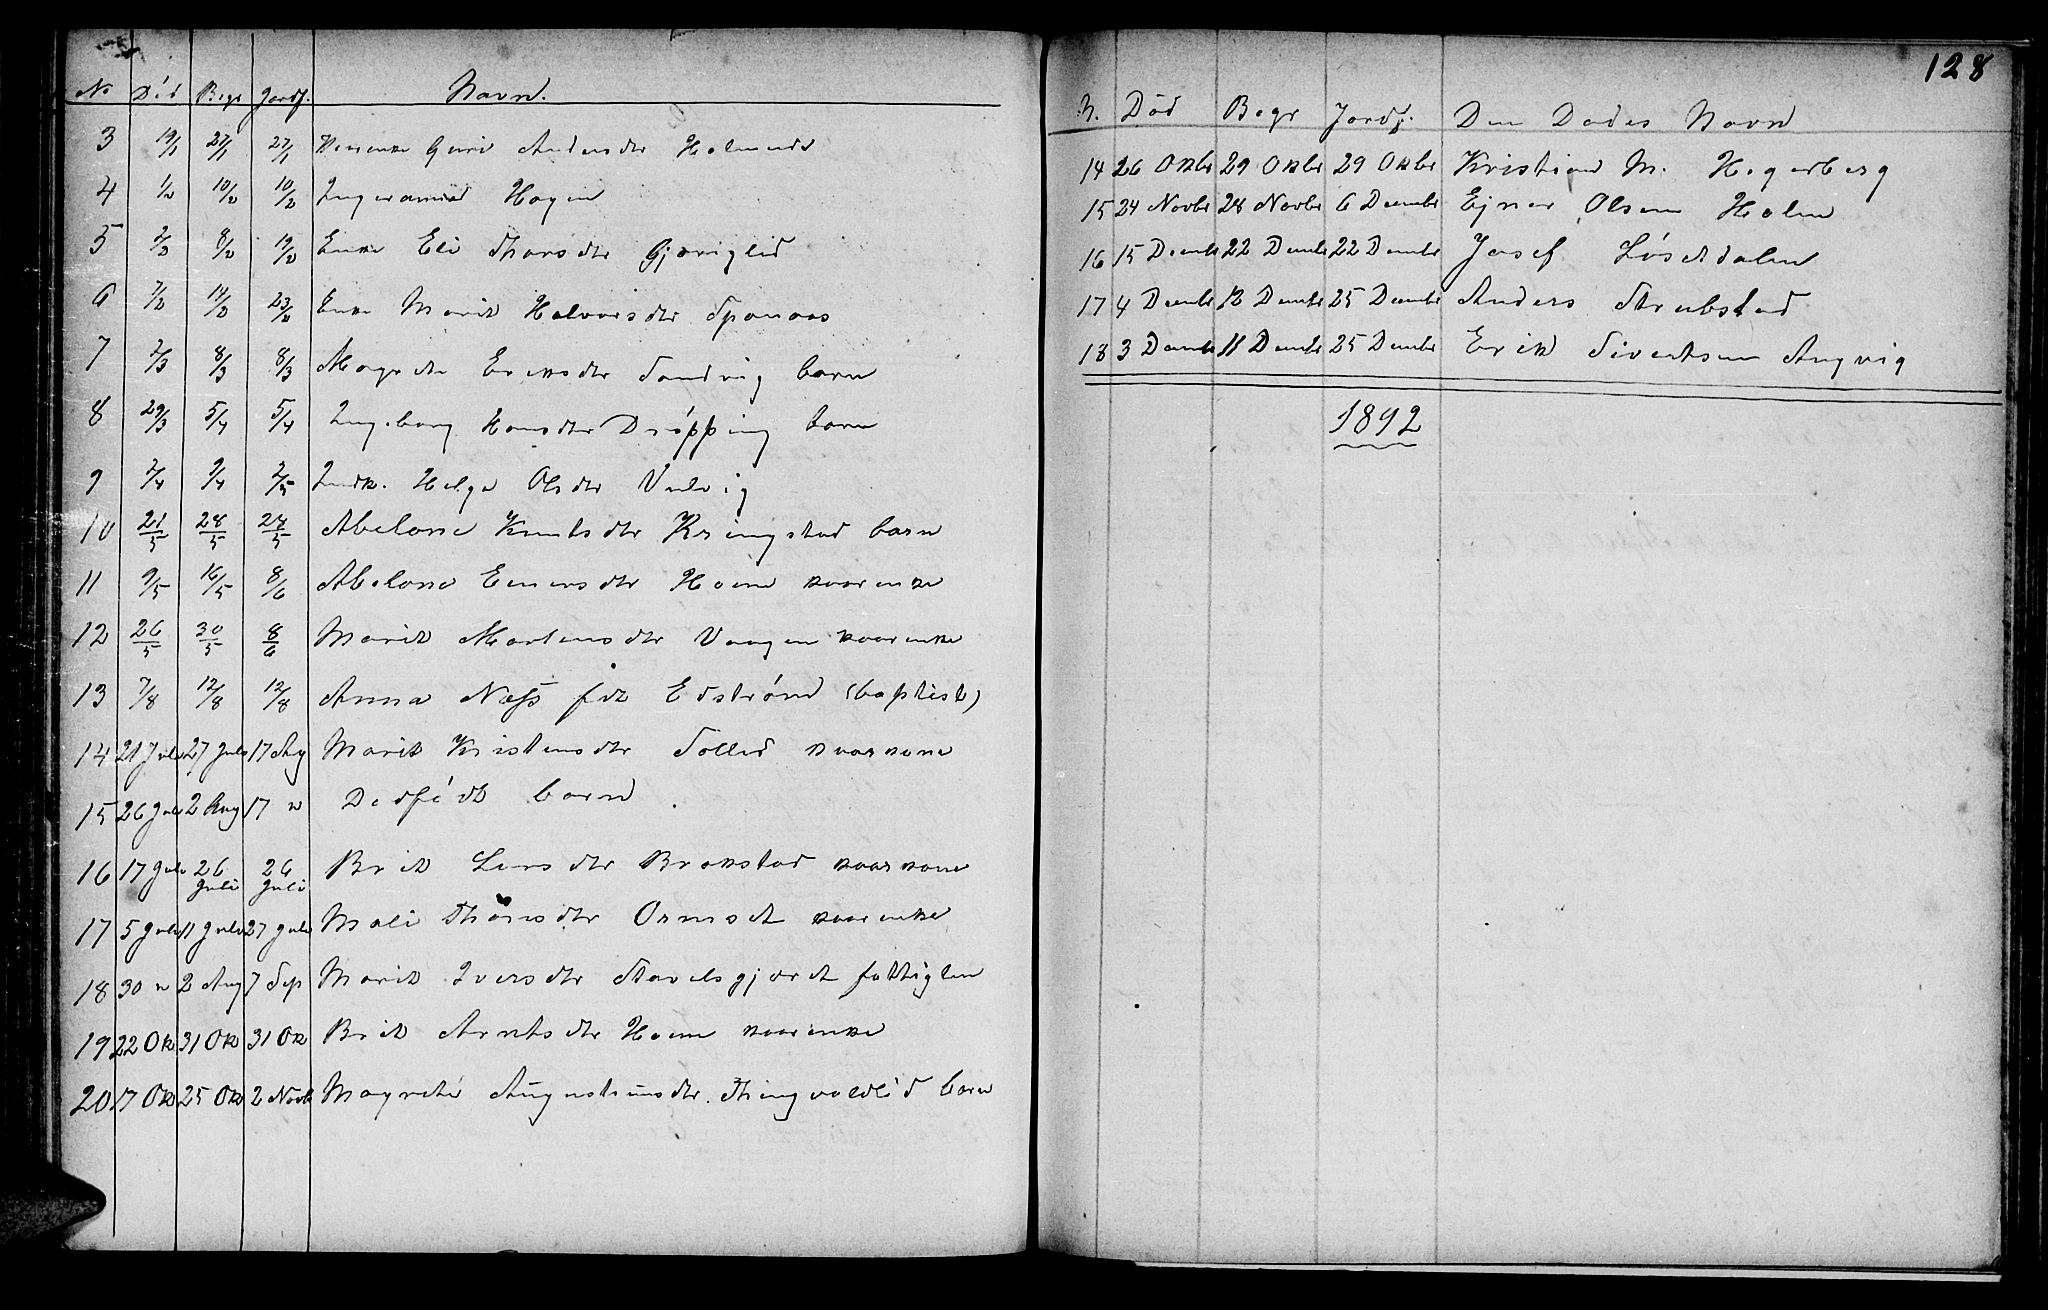 No Død Begr Jordf. Navn.
3 19/1 27/1 27/1 Guri Andersdtr
4 1/2 10/2 10/2 Hagen
5 2/2 8/2 19/2 Enke Eli Thorsdtr
6 7/2 14/2 23/2 Enke Marit Halvorsdtr
7 2/3 8/3 8/3 Magrete Eriksdtr Sandvig barn
8 29/3 5/4 5/4 Ingeborg Hansdtr Drøpping barn
9 2/4 9/4 2/5 Indk. Helge Olsdtr Vulvig
10 21/5 28/5 28/5 Abelone Knutsdtr Kringstad barn
11 9/5 16/5 8/6 Abelone Einersdtr Hoem kaarenke
12 26/5 30/5 8/6 Marit Mortensdtr Vaagen kaarenke
13 7/8 12/8 12/8 Anna Næss født Edstrøm (baptist)
14 21 Juli 27 Juli 17 Aug Marit Kristensdtr Sollid kaarkone
15 26 Juli 2 Aug 17 " Dødfødt barn
16 17 Juli 26 Juli 26 Juli Brit Larsdtr Brokstad kaarkone
17 5 Juli 11 Juli 27 Juli Mali Thorsdtr Ormset kaarenke
18 30 " 2 Aug 7 Sep Marit Iversdtr Stavelsgjæret fattiglem
19 22 Ok 31 Ok 31 Ok Brit Arntsdtr Hoem kaarenke
20 17 Ok 25 Ok 2 Novb Magrete Augustinusdtr. Thingvoldlid barn
128
N. Død Begr Jordf. Den Dødes Navn
14 26 Okbr 29 Okbr 29 Okbr Kristian M. Hegerberg
15 24 Novbr 28 Novbr 6 Decmbr Ejner Olsen Holm
16 15 Decmbr 22 Decmbr 22 Decmbr Josef Løsetdalen
17 4 Decmbr 12 Decmbr 25 Decmbr Anders Strubstad
18 3 Decmbr 11 Decmbr 25 Decmbr Erik Sivertsen Angvig
1892